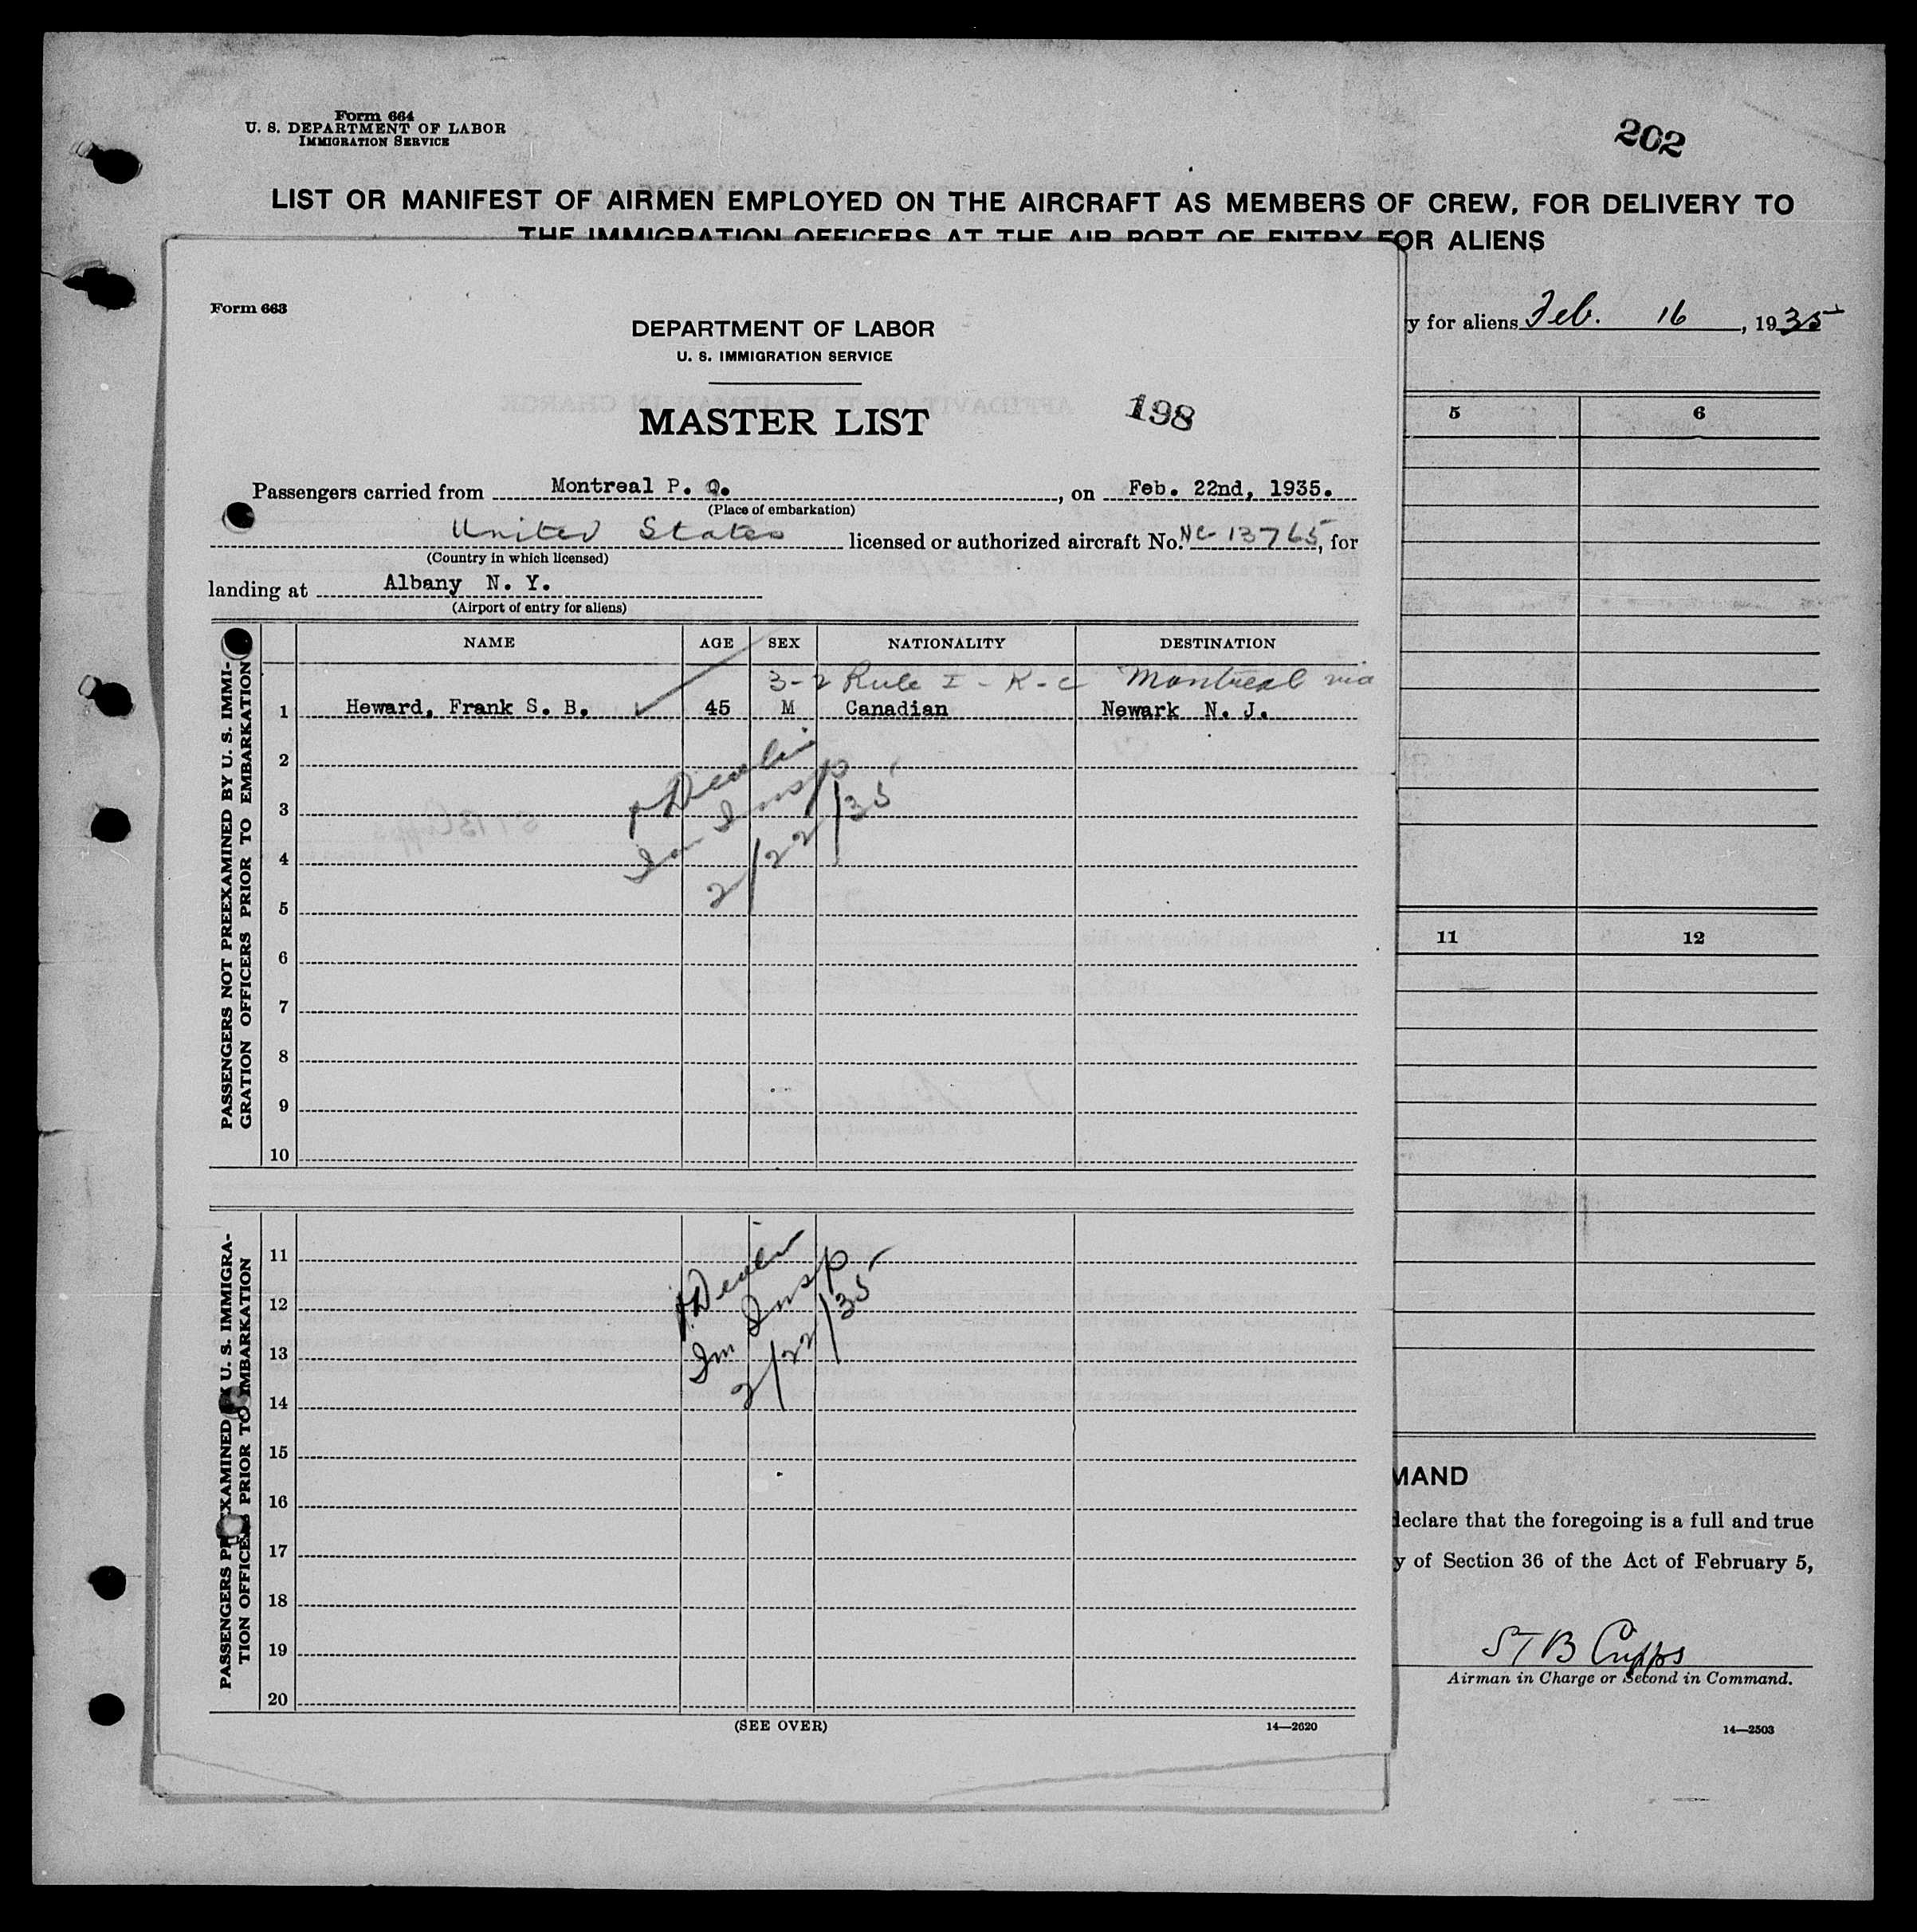 Form 664
U. S. DEPARTMENT OF LABOR
IMMIGRATION SERVICE
202
LIST OR MANIFEST OF AIRMEN EMPLOYED ON THE AIRCRAFT AS MEMBERS OF CREW, FOR DELIVERY TO
THE IMMIGRATION OFFICERS AT THE AIR PORT OF ENTRY FOR ALIENS
y for aliens Feb. 16, 1935
5 6
11 12
MAND
declare that the foregoing is a full and true
y of Section 36 of the Act of February 5,
S T B Cripps
Airman in Charge or Second in Command.
14—2503
Form 663
DEPARTMENT OF LABOR
U. S. IMMIGRATION SERVICE
MASTER LIST
198
Passengers carried from Montreal P. Q., on Feb. 22nd, 1935.
(Place of embarkation)
United States licensed or authorized aircraft No. NC-13765, for
(Country in which licensed)
landing at Albany N. Y.
(Airport of entry for aliens)
NAME AGE SEX NATIONALITY DESTINATION
3-2 Rule I - K-c Montreal via
1 Heward, Frank S. B. 45 M Canadian Newark N. J.
2
3
4
5
6
7
8
9
10
Devlin
Im Insp
2/22/35
PASSENGERS NOT PREEXAMINED BY U. S. IMMI-
GRATION OFFICERS PRIOR TO EMBARKATION
11
12
13
14
15
16
17
18
19
20
Devlin
Im Insp
2/22/35
PASSENGERS PREEXAMINED BY U. S. IMMIGRA-
TION OFFICERS PRIOR TO EMBARKATION
(SEE OVER)
14—2620